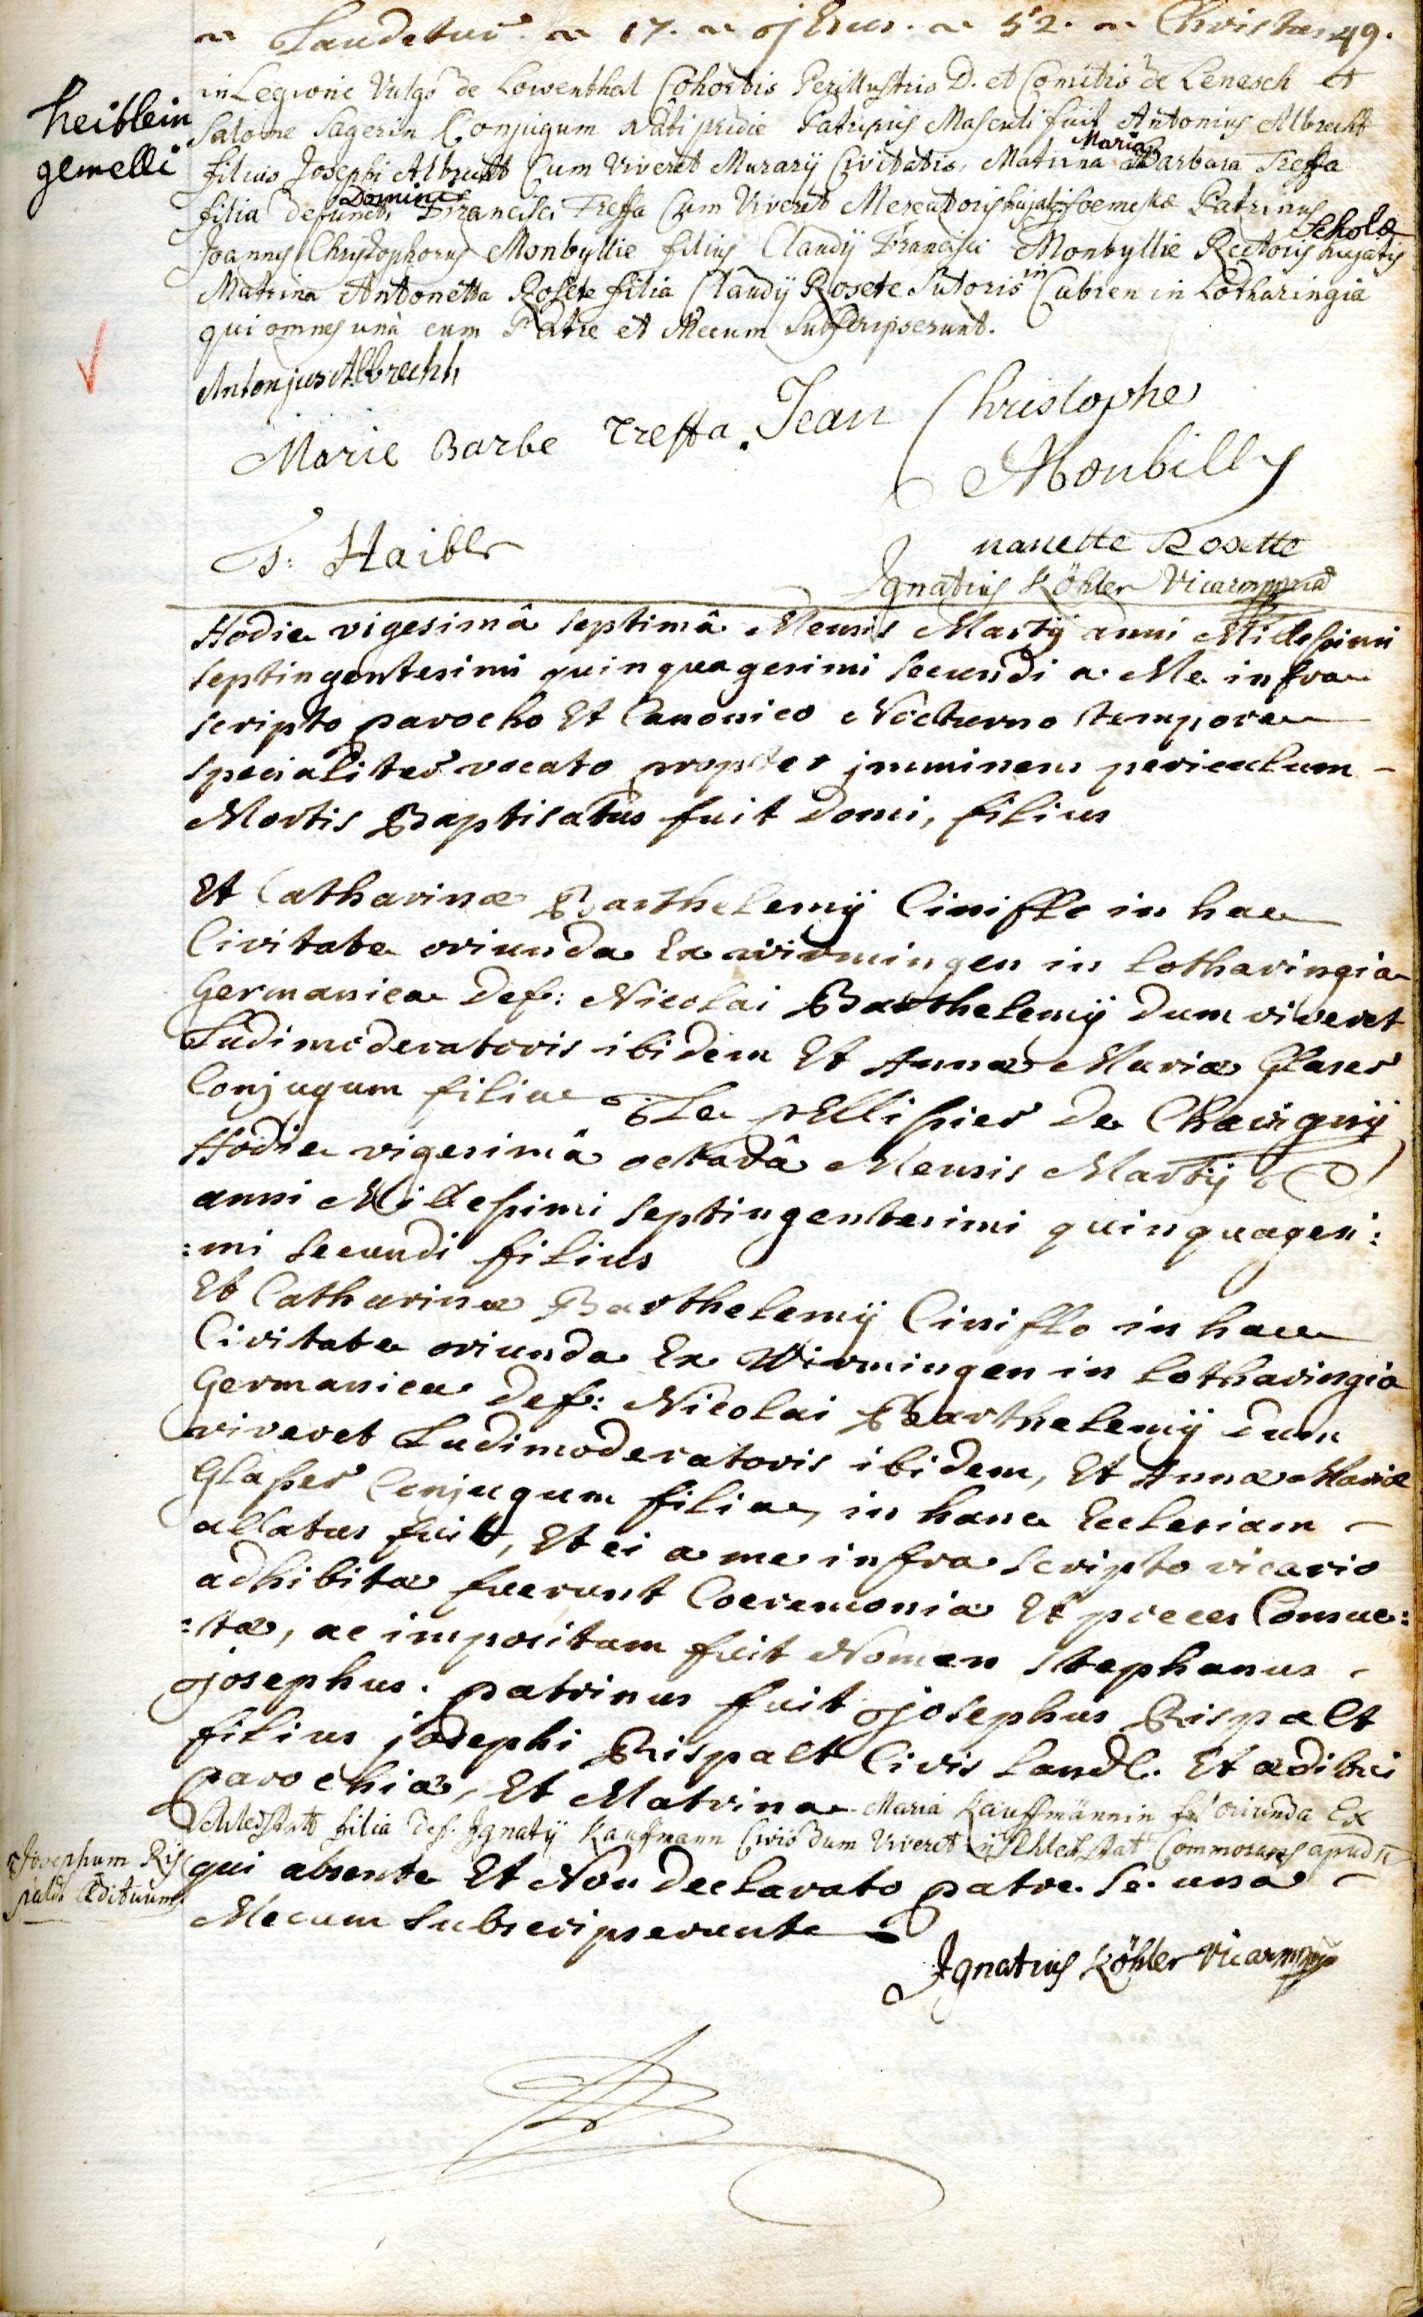 Laudetur 17. Jesus. 52. Christus 49.
in Legione Vulgò de Lowenthal Cohortis Perillustris D. et Comitis de Lenasch et
heiblein
gemelli
Salome Sagerin Conjugum nati pridie Patrinus Masculi fuit Antonius Albrecht
filius Josephi Albrecht Cum Viveret Murarij Civitatis, Matrina Maria Barbara Treffa
filia defuncti Dominici Francisci Treffa Cum Viveret Mercatoris hujatis foemellæ Patrinus
Joannes Christophorus Monbyllie filius Claudij Francisci Monbyllie Rectoris Scholæ hujatis
Matrina Antonetta Rosete filia Claudij Rosete Sutoris in Cabren in Lotharingia
qui omnes unà cum Patre et Mecum Subscripserunt.
Antonius Albrecht
Marie Barbe Treffa. Jean Christophe
Monbilly
Haibl
nanette Rosette
Ignatius Köhler Vicarius
Hodie vigesimâ septimâ Mensis Martij anni Millesimi
septingentesimi quinquagesimi secundi a Me infra
scripto parocho Et Canonico Nocturno tempore
specialiter vocato propter imminens periculum –
Mortis Baptisatus fuit domi, filius
Et Catharinæ Barthelemij Ciniflo in hac
Civitate oriunda Ex wirmingen in lotharingia
Germanica def: Nicolai Barthelemij dum viveret
Ludimoderatoris ibidem Et Annæ Mariæ Glaser
Conjugum filiæ Le pellissier de Chavignij
Hodie vigesimâ octavâ Mensis Martij
anni Millesimi septingentesimi quinquagesi:
:mi secundi filius
Et Catharinæ Barthelemij Ciniflo in hac
Civitate oriunda Ex Wirmingen in lotharingia
Germanica def: Nicolai Barthelemij dum
viveret Ludimoderatoris ibidem, Et Annæ Mariæ
Glaser Conjugum filiæ, in hanc Ecclesiam –
allatus fuit, Et ei a me infra scripto vicario
adhibitæ fuerunt Coeremoniæ Et preces Consue:
:tæ, ac impositum fuit Nomen Stephanus
josephus. patrinus fuit josephus Rispalt
filius josephi Rispalt Civis Landl. Et æditui
parochiæ, Et Matrina Maria Kauffmännin oriunda Ex
Schledstatt filia def. Ignatij Kauffmann Civis dum Viveret in Schledstatt Commorans apud
Josephum Ris
paldt Ædituum
qui absente Et Non declarato patre se una –
Mecum subscripserunt
Ignatius Köhler Vicarius